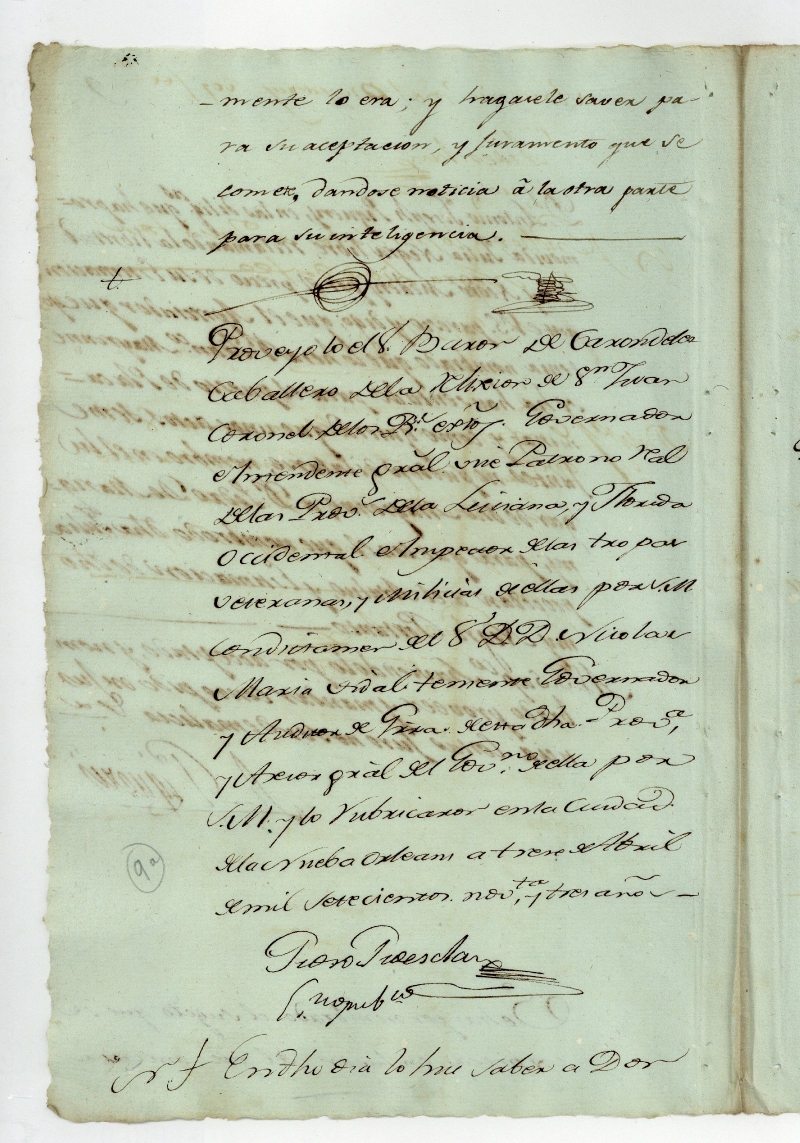 -mente lo era; y hagasele saver pa-
ra su aceptacion, y juramento que se
comete, dandose noticia â la otra parte
para su inteligencia.
Proveyolo el S.r Baron de Carondelet
Caballero de la Relixion de S.n Juan
Coronel de los R.s extos Governador
e Intendente gral vice Patrono Real
de las Prov.s de la Luiciana, y Florida
Occidental e Inspector de las tropas
veteranas, y Milicias de ellas por S.M
con dictamen del S.r D.D. Nicolas
Maria Vidal teniente Governador
y Auditor de Grra. de esta dha. Prov.a,
y Asesor gral del Gov.no de ella por
S.M. y lo rubricaron en la Ciudad
de la Nueba Orleans a trese de Abril
de mil setecientos. nov.ta y tres años
Pedro Pedesclaux
S.no pub.co
9a
En dho dia lo hise saber a Don